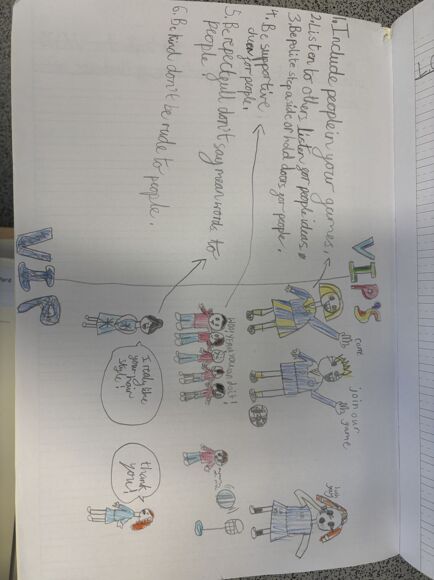 VIP'S
VIP
1. Include people in your games.
2. Listen to others listen for people ideas
3. Be polite step a side or hold doors for people.
4. Be supportive,
cheer for people.
5. Be respectfull don't say mean words to
people
6. Be kind don't be rude to people.
come
join our
game
you can do it!
I realy like
your hair
style!
thank
you!